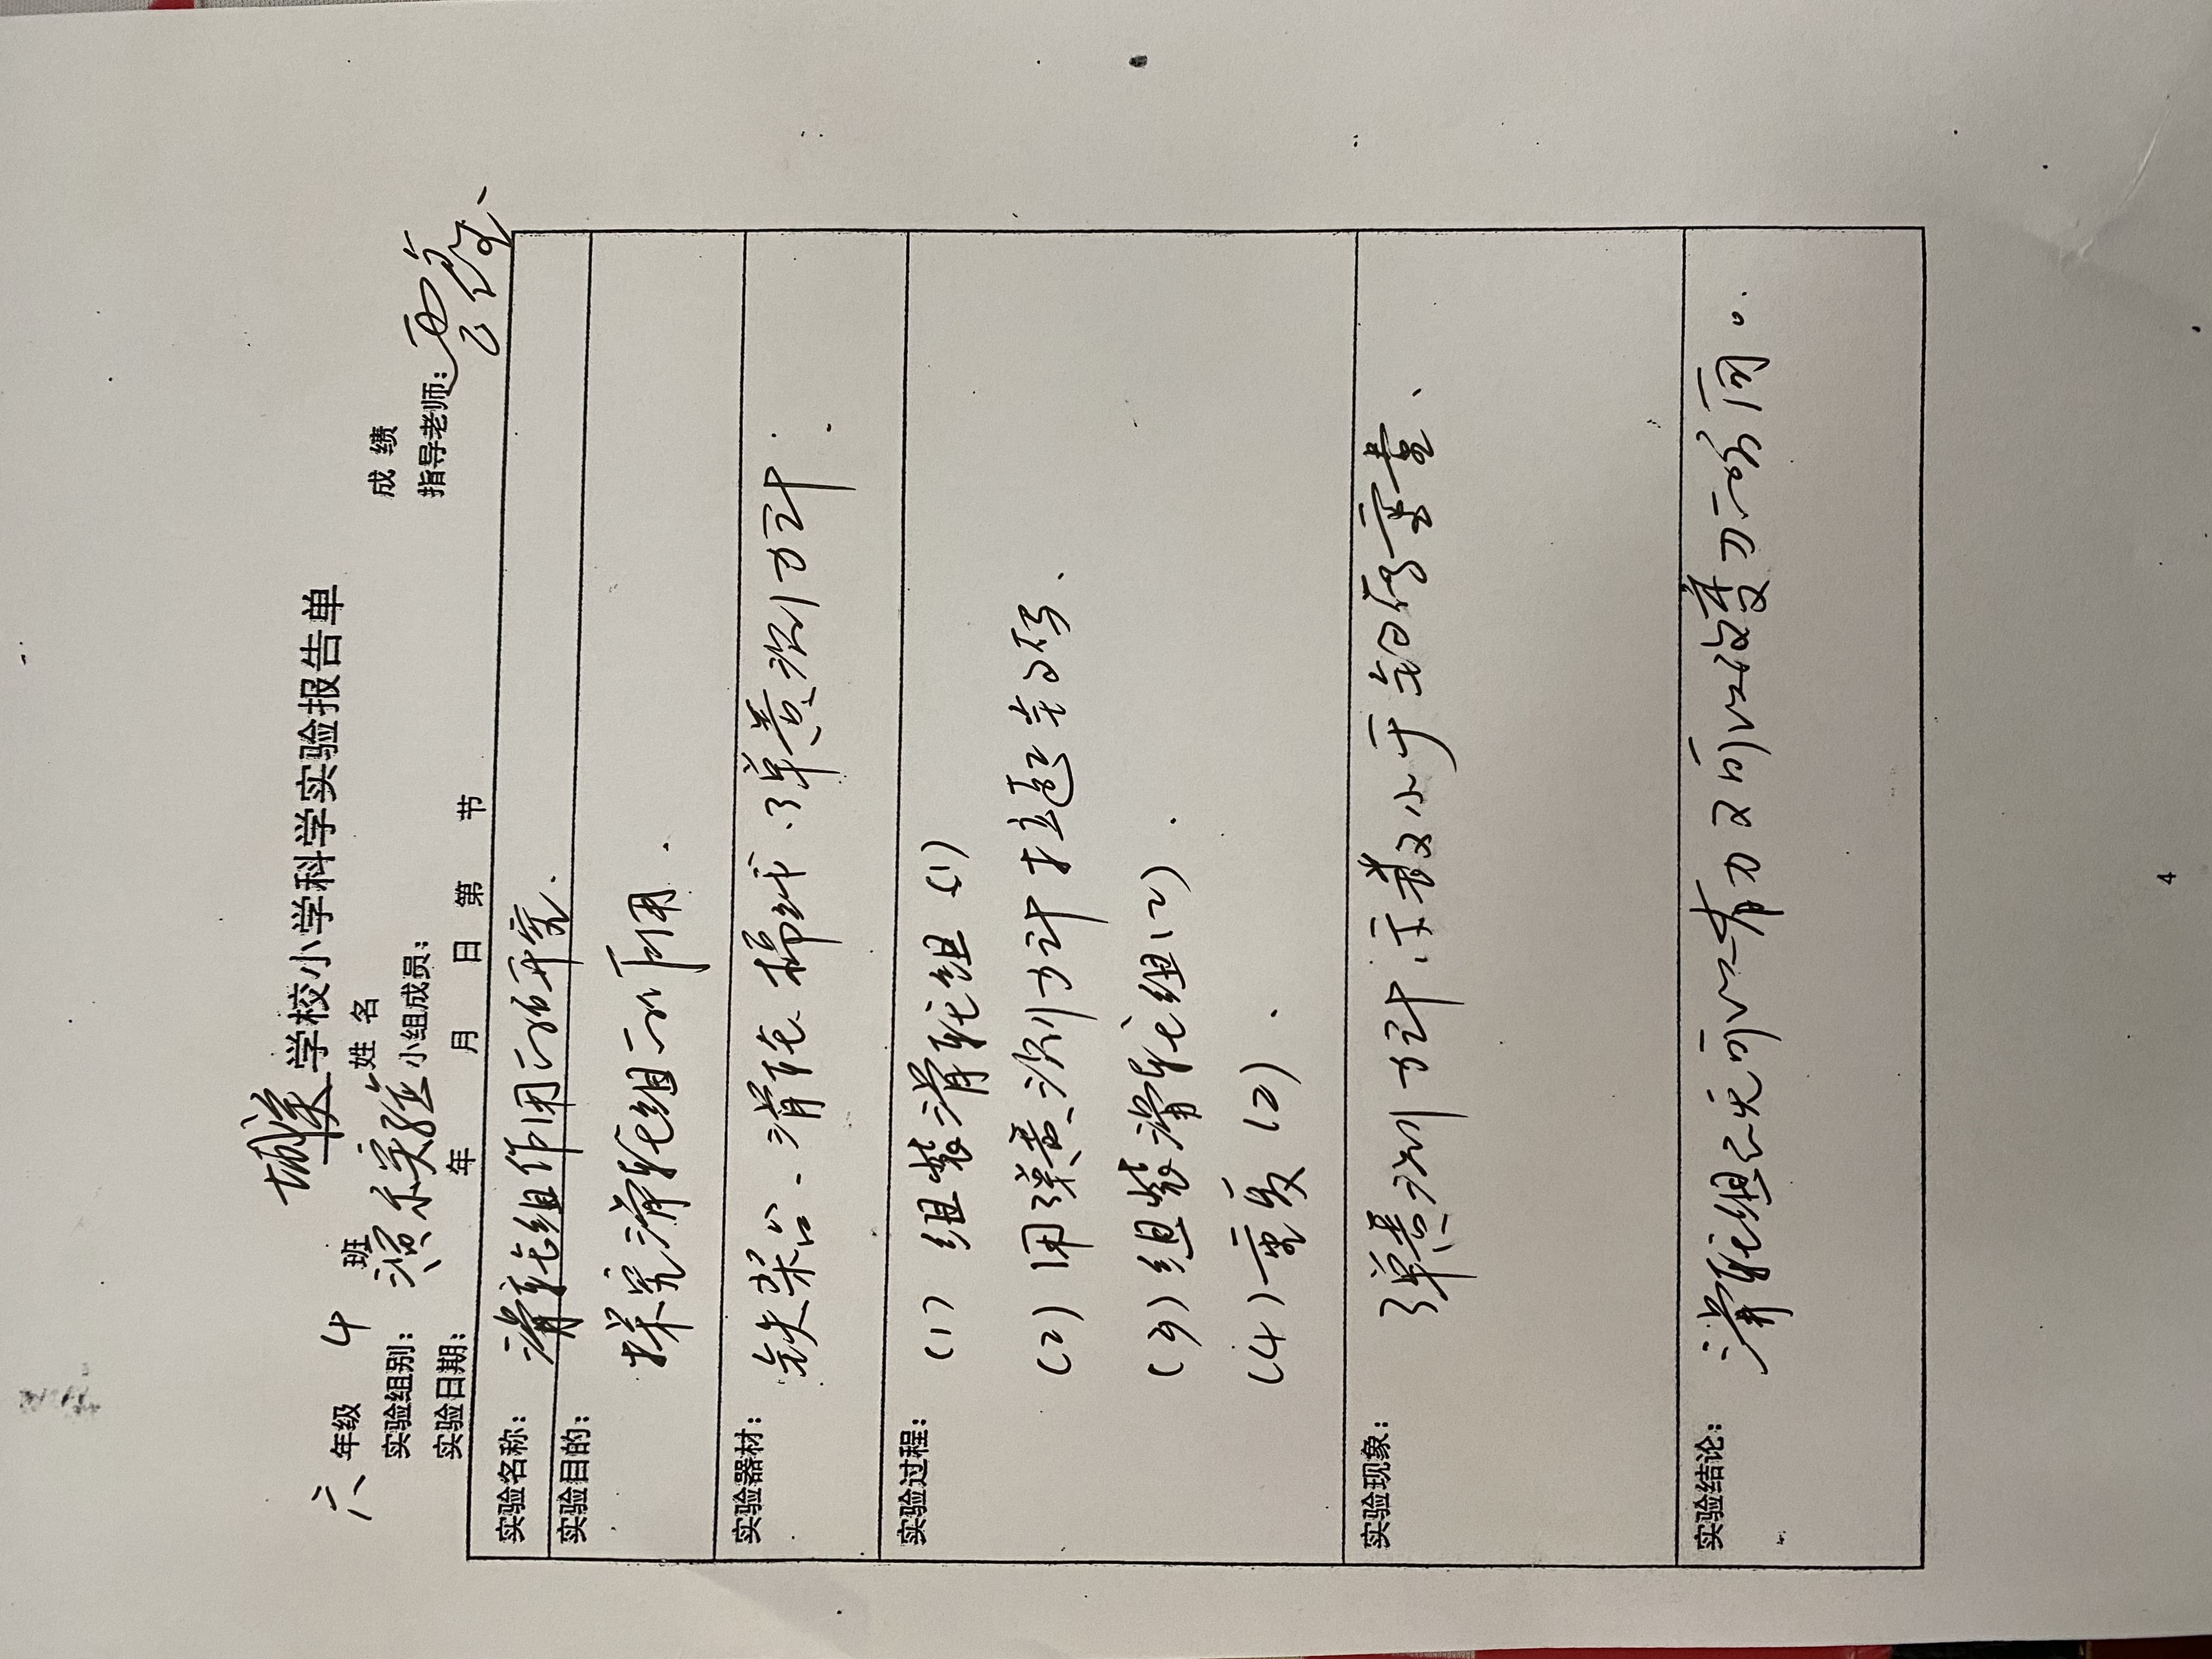 城关学校小学科学实验报告单
六年级 4 班 姓名 成绩
实验组别: 演示实验 小组成员: 指导老师:
实验日期: 年 月 日 第 节
实验名称: 滑轮组作用的研究.
实验目的:
探究滑轮组的作用.
实验器材:
铁架台、滑轮、棉线、弹簧测力计.
实验过程:
(1) 组装滑轮组(1)
(2) 用弹簧测力计拉起钩码.
(3) 组装滑轮组(2).
(4) 重复(2).
实验现象:
弹簧测力计示数小于钩码重量、
实验结论:
滑轮组既可以省力又可以改变力的方向。
4